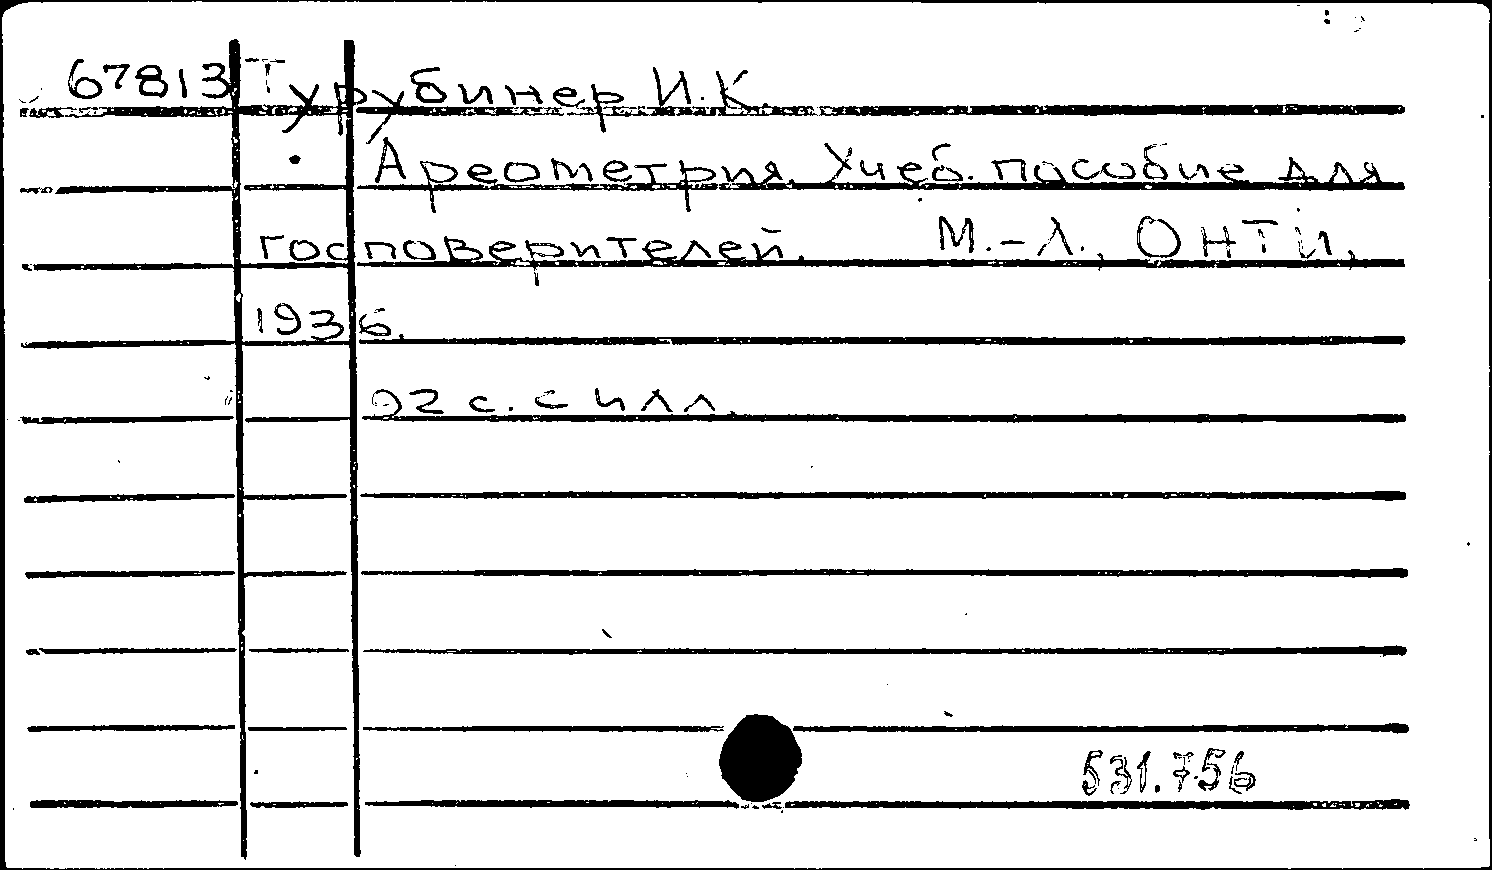 67813 Турубинер И.К.
Ареометрия. Учеб. пособие для
госповерителей. М.-Л., ОНТИ,
1936.
92 с. с илл.
531.756